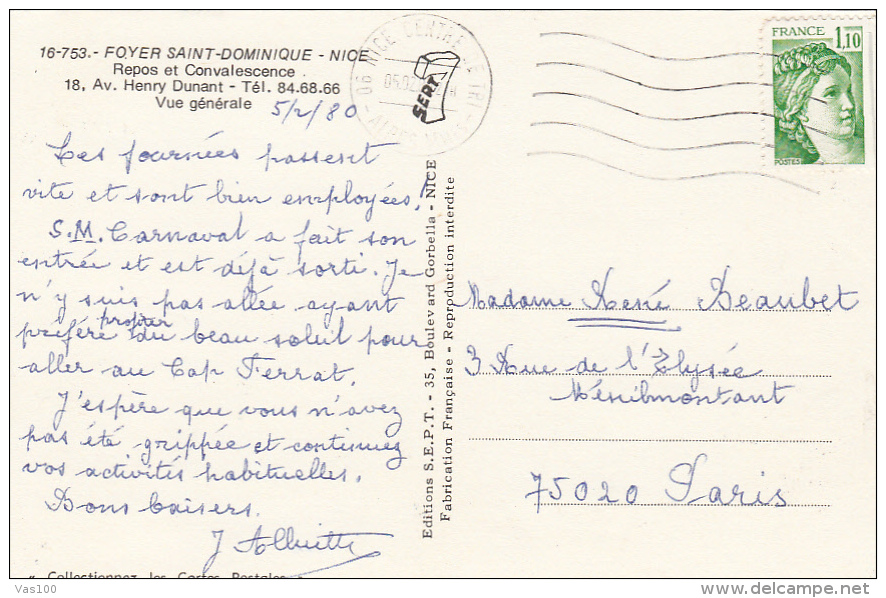 16-753.- FOYER SAINT-DOMINIQUE - NICE
Repos et Convalescence
18, Av. Henry Dunant - Tél. 84.68.66
Vue générale
5/2/80
Les journées passent
vite et sont bien employées!
S.M. Carnaval a fait son
entrée et est déjà sorti. Je
n'y suis pas allée ayant
préféré profiter du beau soleil pour
aller au Cap Ferrat.
J'espère que vous n'avez
pas été grippée et continuez
vos activités habituelles.
Bons baisers.
« Collectionnez les Cartes Postales »
Editions S.E.P.T. - 35, Boulevard Gorbella - NICE
Fabrication Française - Reproduction interdite
06 NICE CENTRE DE TRI
SEPT
FRANCE
1,10
POSTES
Madame René Beaubet
3 Rue de l'Elysée
Ménilmontant
75020 Paris
Vas100
www.delcampe.net